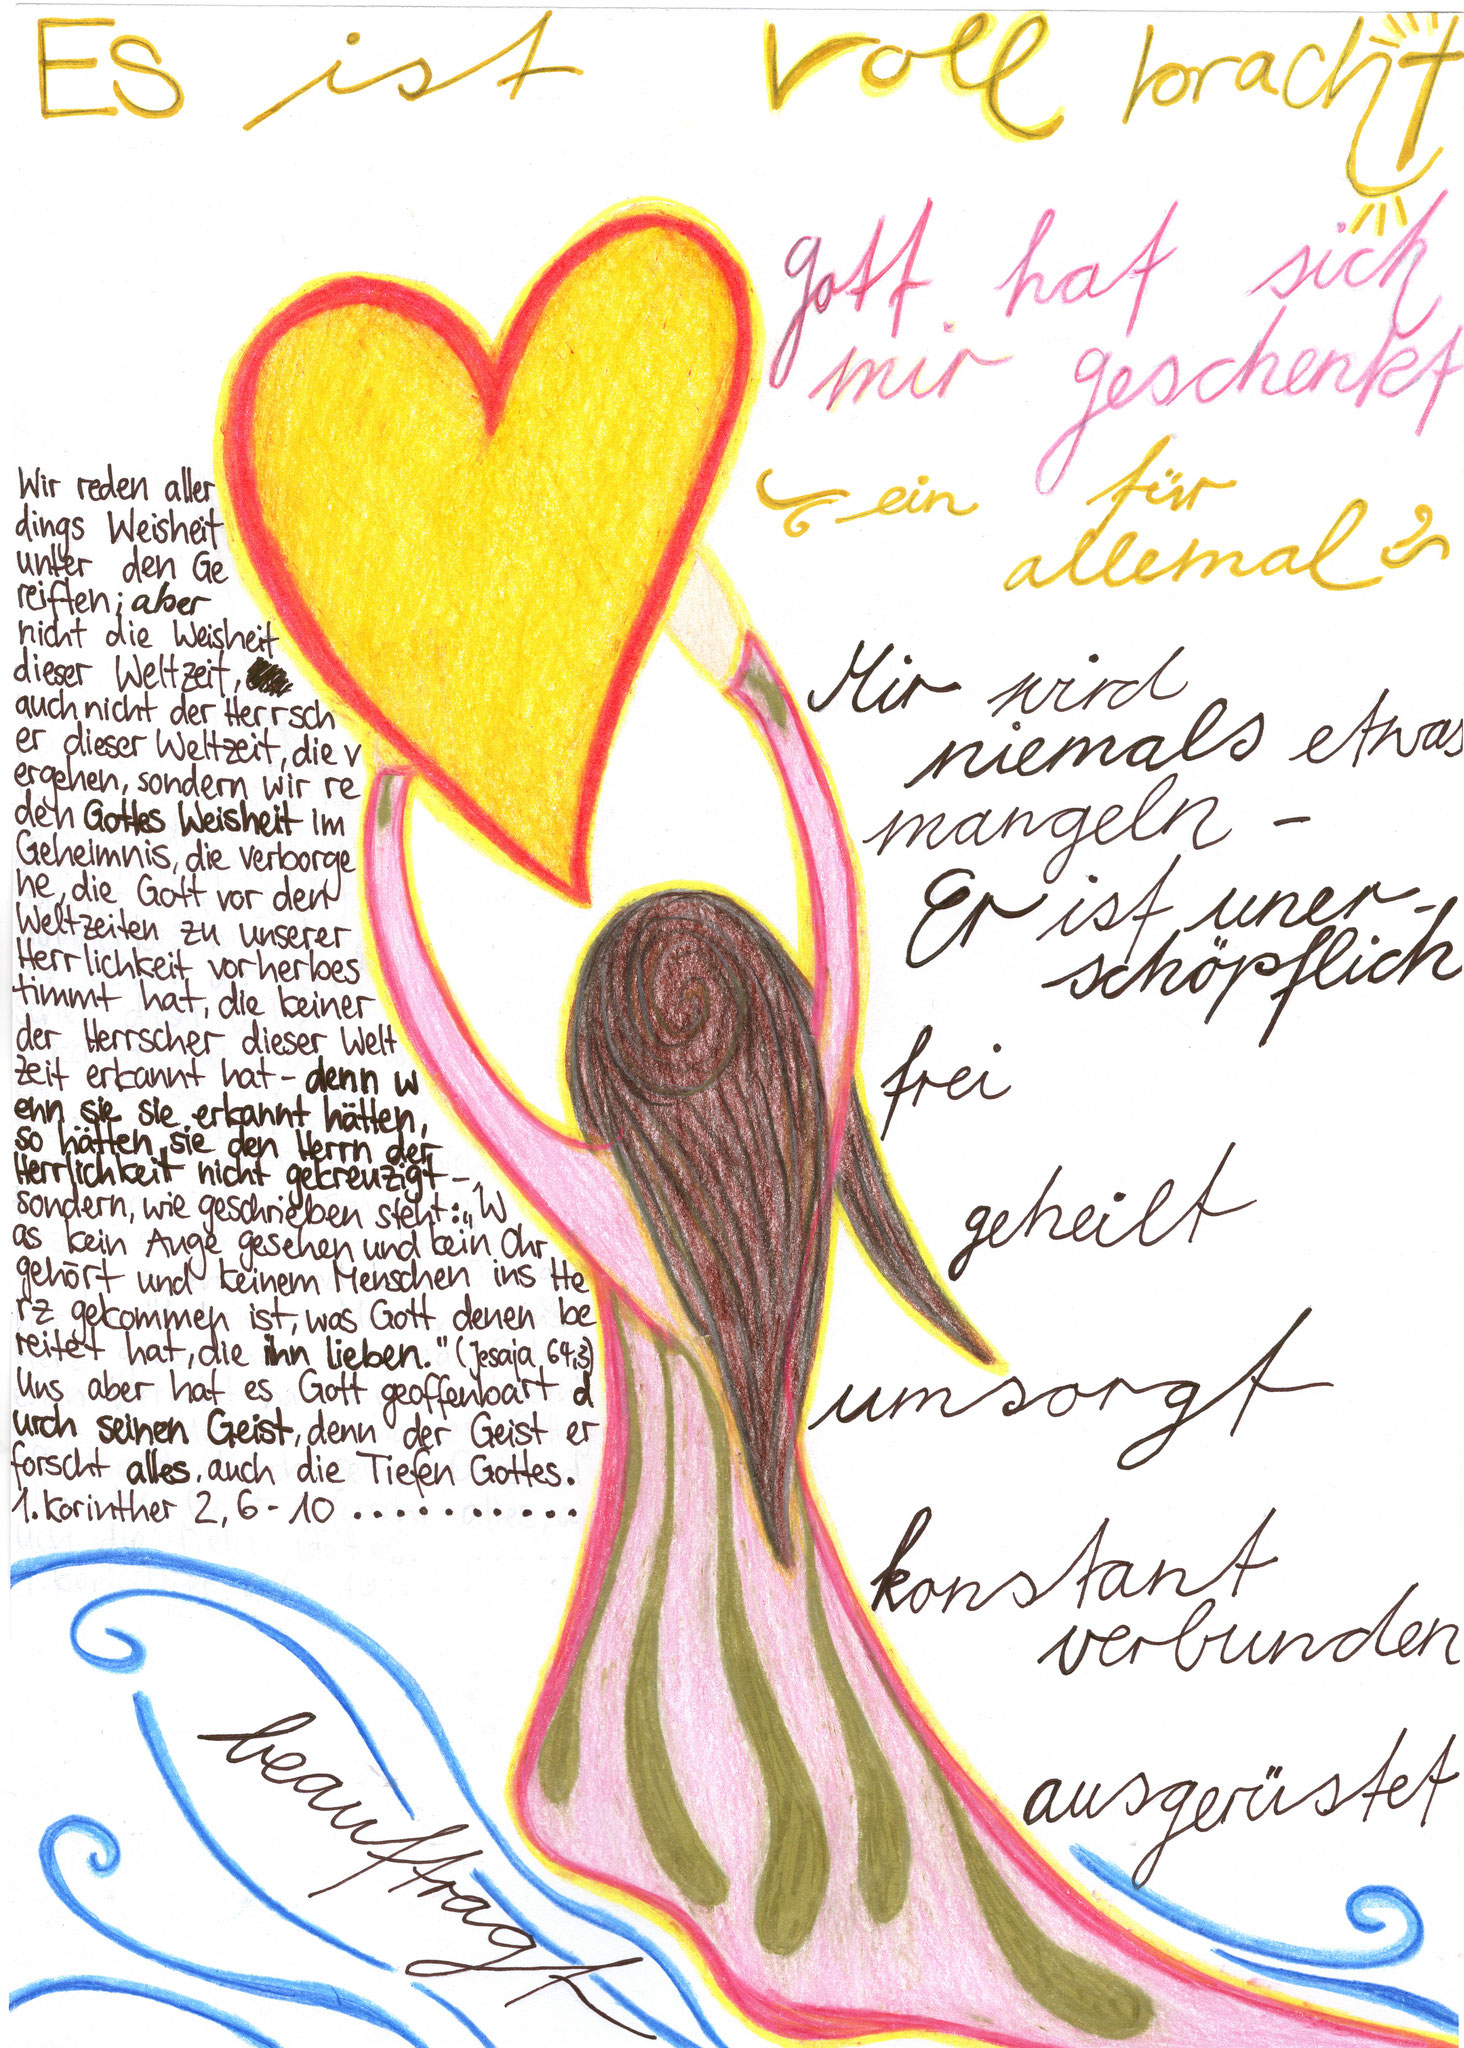 Es ist vollbracht
Gott hat sich
mir geschenkt
ein für
allemal
Wir reden aller
dings Weisheit
unter den Ge
reiften; aber
nicht die Weisheit
dieser Weltzeit,
auch nicht der Herrsch
er dieser Weltzeit, die v
ergehen, sondern wir re
den Gottes Weisheit im
Geheimnis, die verborge
ne, die Gott vor den
Weltzeiten zu unserer
Herrlichkeit vorherbes
timmt hat, die keiner
der Herrscher dieser Welt
zeit erkannt hat - denn w
enn sie sie erkannt hätten,
so hätten sie den Herrn der
Herrlichkeit nicht gekreuzigt -,
sondern, wie geschrieben steht: „W
as kein Auge gesehen und kein Ohr
gehört und keinem Menschen ins He
rz gekommen ist, was Gott denen be
reitet hat, die ihn lieben." (Jesaja 64,3)
Uns aber hat es Gott geoffenbart d
urch seinen Geist, denn der Geist er
forscht alles, auch die Tiefen Gottes.
1. Korinther 2, 6-10 ..........
Mir wird
niemals etwas
mangeln -
Er ist uner-
schöpflich
frei
geheilt
umsorgt
konstant
verbunden
ausgerüstet
beauftragt